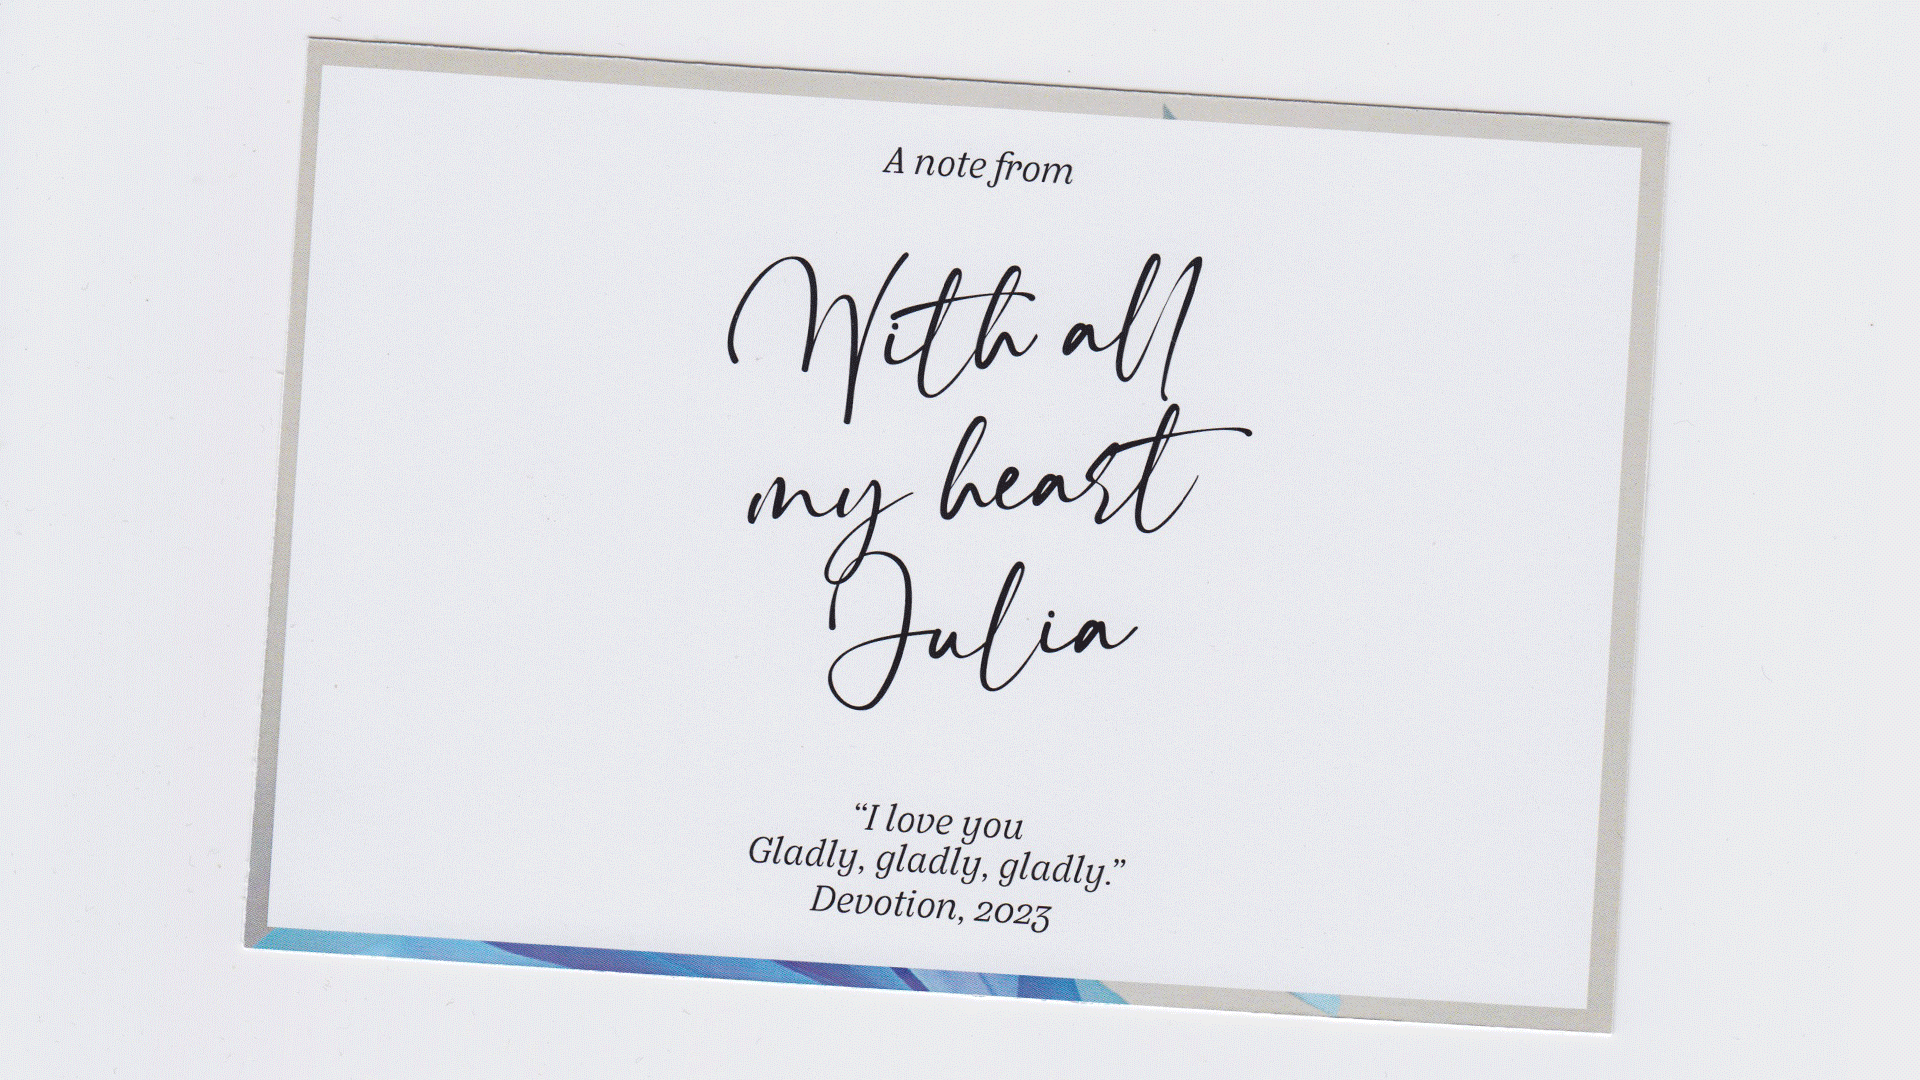 A note from
With all
my heart
Julia
“I love you
Gladly, gladly, gladly.”
Devotion, 2023